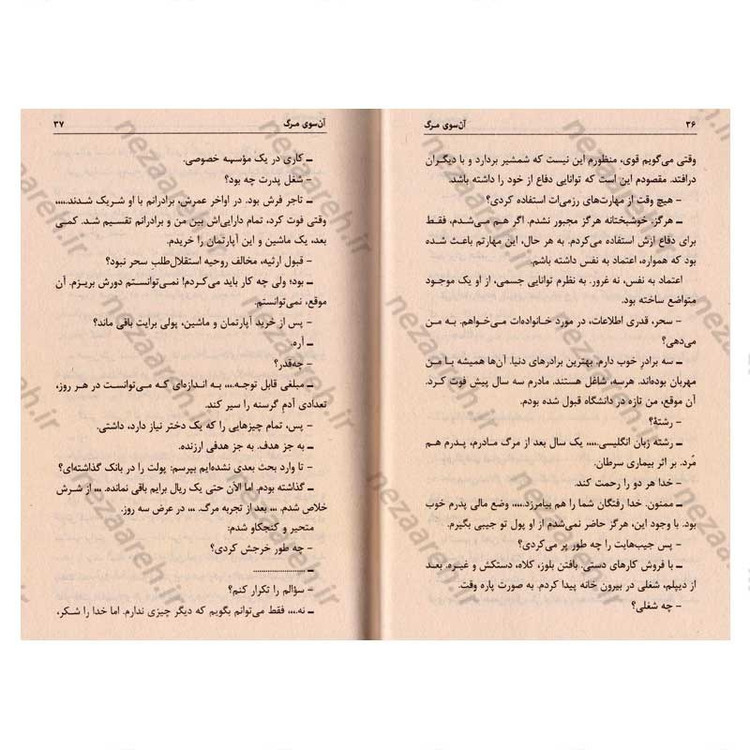 ۳۶ آن‌سوی مرگ
وقتی می‌گویم قوی، منظورم این نیست که شمشیر بردارد و با دیگران
درافتد. مقصودم این است که توانایی دفاع از خود را داشته باشد.
- هیچ وقت از مهارت‌های رزمی‌ات استفاده کردی؟
ــ هرگز. خوشبختانه هرگز مجبور نشدم. اگر هم می‌شدم، فقط
برای دفاع ازش استفاده می‌کردم. به هر حال، این مهارتم باعث شده
بود که همواره، اعتماد به نفس داشته باشم.
اعتماد به نفس، نه غرور. به نظرم توانایی جسمی، از او یک موجود
متواضع ساخته بود.
- سحر، قدری اطلاعات، در مورد خانواده‌ات می‌خواهم. به من
می‌دهی؟
ــ سه برادر خوب دارم. بهترین برادرهای دنیا. آن‌ها همیشه با من
مهربان بوده‌اند. هرسه، شاغل هستند. مادرم سه سال پیش فوت کرد.
آن موقع، من تازه در دانشگاه قبول شده بودم.
- رشتهٔ؟
ــ رشته زبان انگلیسی..... یک سال بعد از مرگ مادرم، پدرم هم
مُرد. بر اثر بیماری سرطان.
- خدا هر دو را رحمت کند.
ــ ممنون. خدا رفتگان شما را هم بیامرزد..... وضع مالی پدرم خوب
بود. با وجود این، هرگز حاضر نمی‌شدم از او پول تو جیبی بگیرم.
- پس جیب‌هایت را چه طور پر می‌کردی؟
ــ با فروش کارهای دستی. بافتن بلوز، کلاه، دستکش و غیره. بعد
از دیپلم، شغلی در بیرون خانه پیدا کردم. به صورت پاره وقت.
- چه شغلی؟
آن‌سوی مرگ ۳۷
ــ کاری در یک مؤسسه خصوصی.
- شغل پدرت چه بود؟
ــ تاجر فرش بود. در اواخر عمرش، برادرانم با او شریک شدند.....
وقتی فوت کرد، تمام دارایی‌اش بین من و برادرانم تقسیم شد. کمی
بعد، یک ماشین و این آپارتمان را خریدم.
- قبول ارثیه، مخالف روحیه استقلال‌طلب سحر نبود؟
ــ بود؛ ولی چه کار باید می‌کردم! نمی‌توانستم دورش بریزم. آن
موقع، نمی‌توانستم.
- پس از خرید آپارتمان و ماشین، پولی برایت باقی ماند؟
ــ آره.
- چه‌قدر؟
ــ مبلغی قابل توجه.... به اندازه‌ای که می‌توانست در هر روز،
تعدادی آدم گرسنه را سیر کند.
- پس، تمام چیزهایی را که یک دختر نیاز دارد، داشتی.
ــ به جز هدف. به جز هدفی ارزنده.
- تا وارد بحث بعدی نشده‌ایم بپرسم: پولت را در بانک گذاشته‌ای؟
ــ گذاشته بودم. اما الآن حتی یک ریال برایم باقی نمانده. ... از شرش
خلاص شدم. ... بعد از تجربه مرگ. ... در عرض سه روز.
متحیر و کنجکاو شدم:
- چه طور خرجش کردی؟
ــ ....................
- سؤالم را تکرار کنم؟
ــ نه..... فقط می‌توانم بگویم که دیگر چیزی ندارم. اما خدا را شکر،
nezaareh.ir